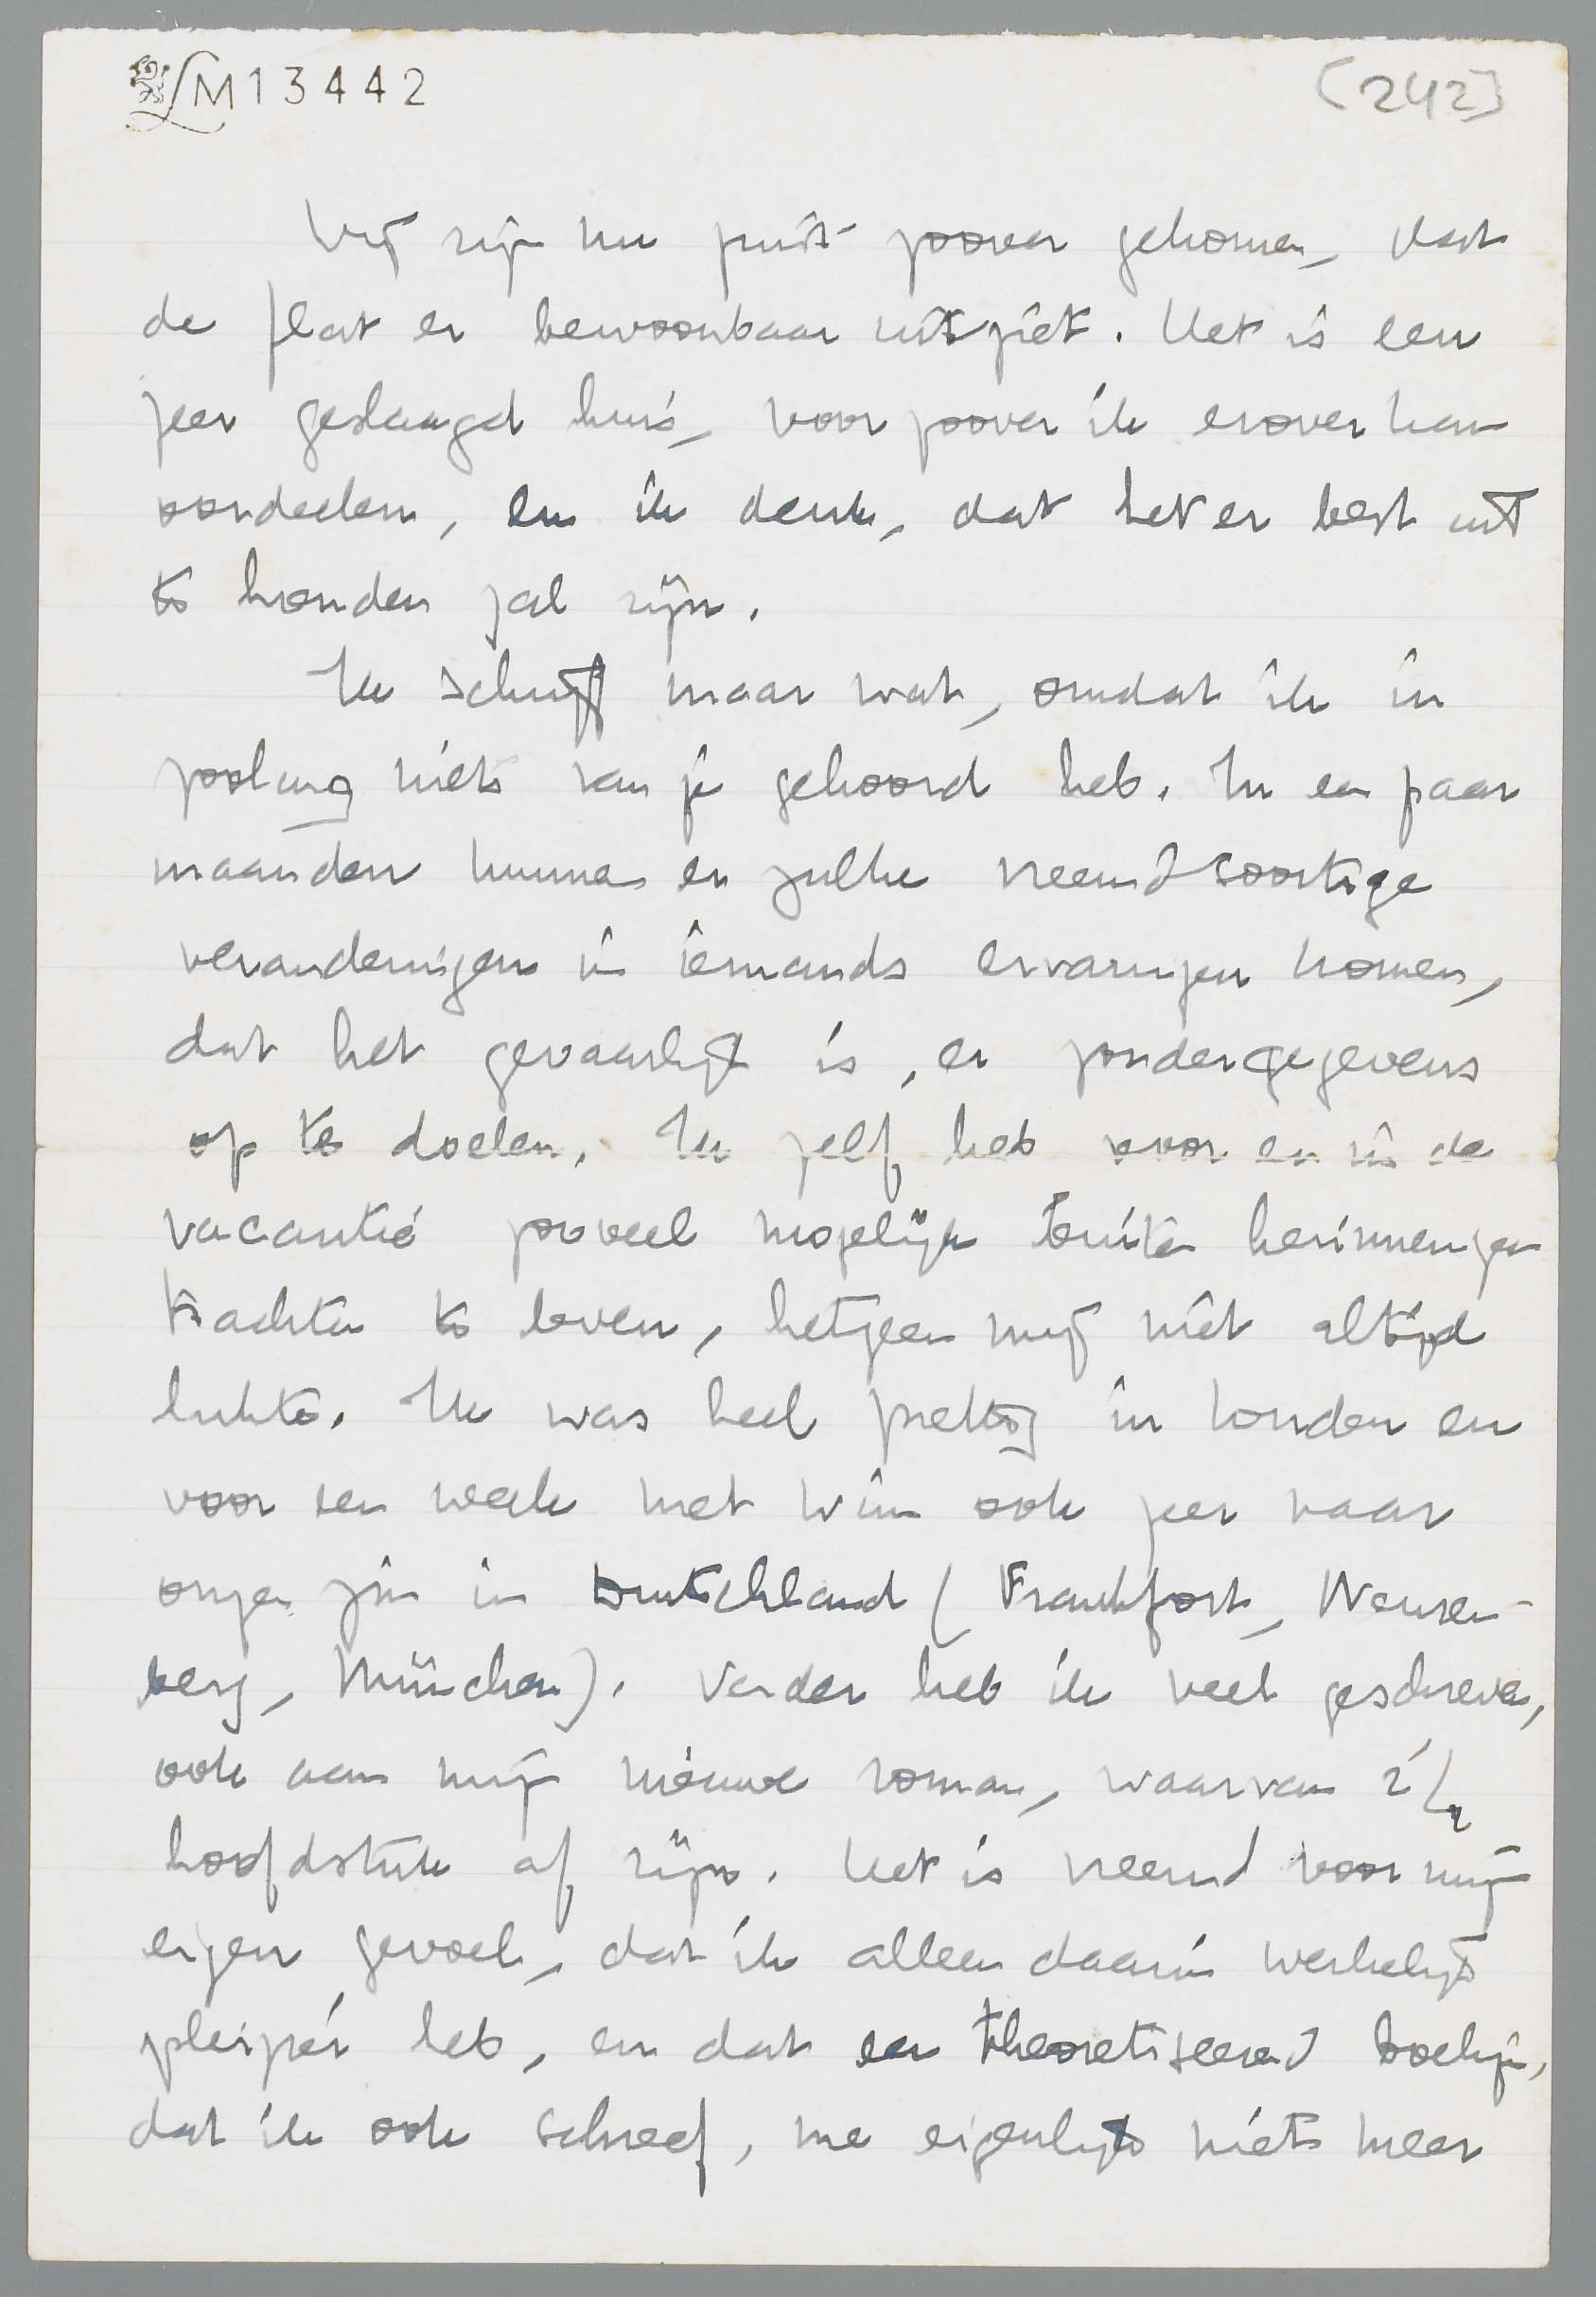 LM13442
[242]
Wij zijn nu juist zoover gekomen, dat
de flat er bewoonbaar uitziet. Het is een
zeer geslaagd huis, voor zoover ik erover kan
oordeelen, en ik denk, dat het er best uit
te houden zal zijn.
Ik schrijf maar wat, omdat ik in
zoolang niets van je gehoord heb. In een paar
maanden kunnen er zulke vreemdsoortige
veranderingen in iemands ervaringen komen,
dat het gevaarlijk is, er zonder gegevens
op te doelen. Ik zelf heb voor en in de
vacantie zooveel mogelijk buiten herinneringen
trachten te leven, hetgeen mij niet altijd
lukte. Ik was heel prettig in Londen en
voor een week met Wim ook zeer naar
onzen zin in Duitschland (Frankfort, Neuren-
berg, München). Verder heb ik veel geschreven,
ook aan mijn nieuwe roman, waarvan 2½
hoofdstuk af zijn. Het is vreemd voor mijn
eigen gevoel, dat ik alleen daarin werkelijk
pleizier heb, en dat een theoretiseerend boekje,
dat ik ook schreef, me eigenlijk niets meer